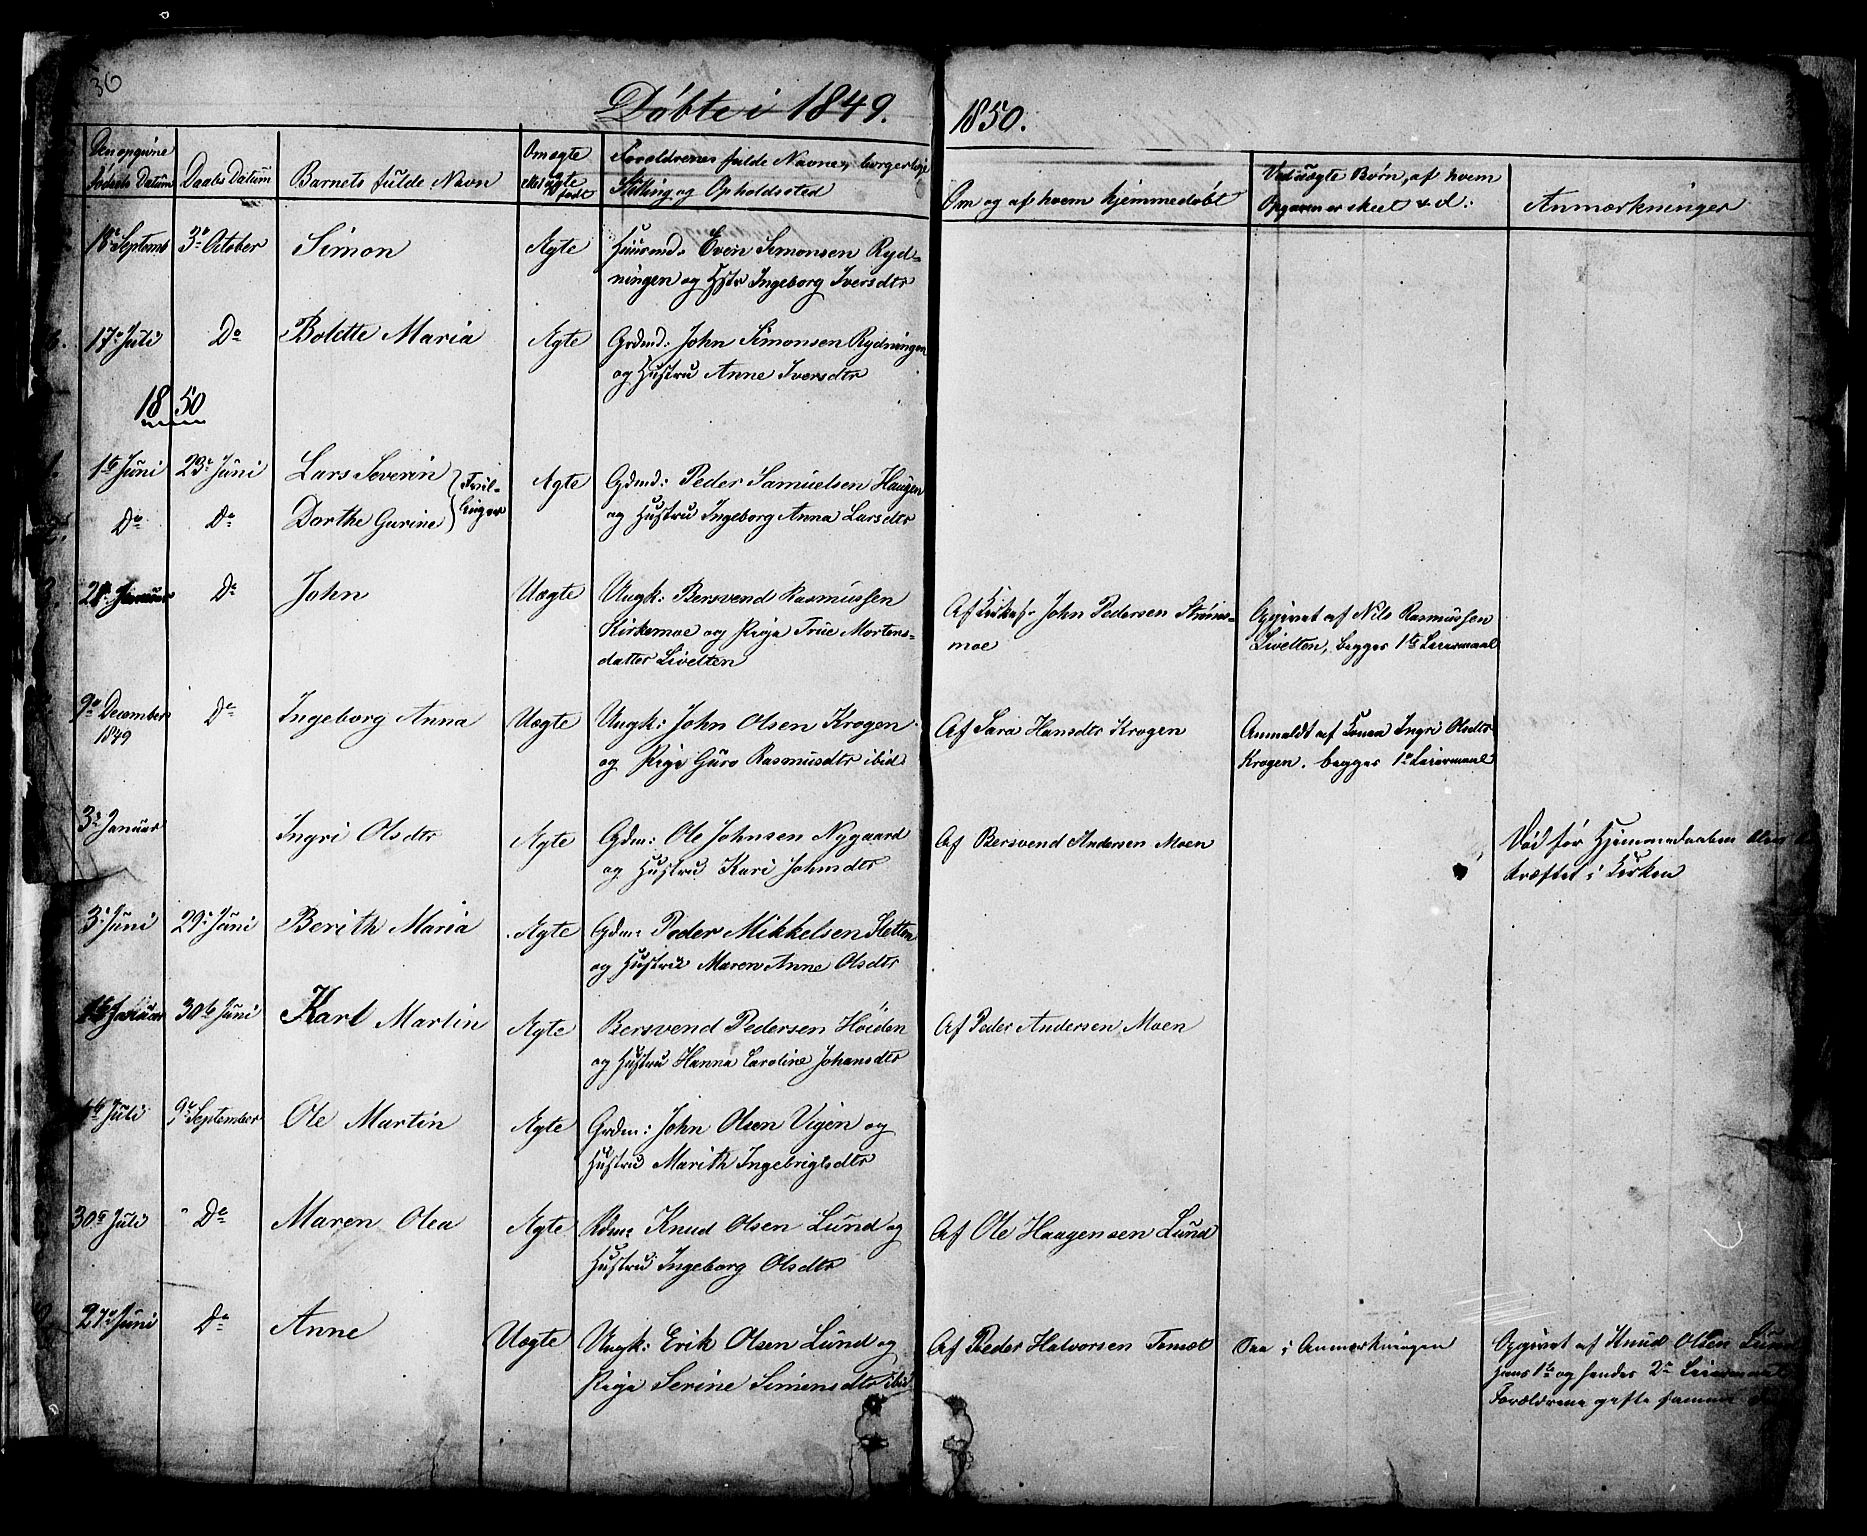 36
Döbte i 1849.
1850.
Den opgivne
Fødsels Datum
Daabs Datum
Barnets fulde Navn
Om ægte
eller uægte
født
Forældrenes fulde Navne, borgerlige
Stilling og Opholdssted
Om og af hvem hjemmedøbt
Ved uægte Børn, af hvem
Opgaven er skeet
Anmærkninger
18de Septemb
3de October
Simon
Ægte
Huusmd. Even Simonsen Ryd-
ningen og Hstr Ingeborg Iversdtr
17de Juli
Do
Bolette Maria
Ægte
Grdmd: John Simonsen Rydningen
og Hustru Anne Iversdtr
1850
1te Juni
23de Juni
Lars Severin
Tvil-
Ægte
Gdmd: Peder Samuelsen Haugen
Do
Do
Dorthe Gurine
linger
og Hustru Ingeborg Anna Larsdtr
28de Januar
Do
John
Uægte
Ungk: Bersvend Rasmussen
Kirkemoe og Pige True Mortens-
datter Livelten
Af Kirkes. John Pedersen Strøms-
moe
Opgivet af Nils Rasmussen
Livelten, begges 1te Leiermaal
9de December
1849
Do
Ingeborg Anna
Uægte
Ungk: John Olsen Krogen
og Pige Guro Rasmusdtr ibid.
Af Sara Hansdtr Krogen
Anmeldt af Konen Ingri Olsdtr
Krogen. begges 1te Leiermaal
3de Januar
Ingri Olsdtr
Ægte
Gdm: Ole Johnsen Nygaard
og Hustru Kari Johnsdtr
Af Bersvend Andersen Moen
Død før Hjemmedaaben blev
kræftet i Kirken
3de Juni
29de Juni
Berith Maria
Ægte
Gdm: Peder Mikkelsen Sletten
og Hustru Maren Anne Olsdtr
Januar
30te Juni
Karl Martin
Ægte
Bersvend Pedersen Höiden
og Hustru Hanna Caroline Johansdtr
Af Peder Andersen Moen
Juli
9de September
Ole Martin
Ægte
Grdm: John Olsen Vigen og
Hustru Marith Ingebrigtsdtr
30te Juli
Do
Maren Olea
Ægte
Knud Olsen Lund og
Hustru Ingeborg Olsdtr
Af Ole Haagensen Lund
27de Juni
Do
Anne
Uægte
Ungk: Erik Olsen Lund og
Pige Serine Simensdtr ibid
Af Peder Halvorsen
See i Anmærkningen
Opgivet af Knud Olsen Lund
hans 1te og hendes 2de Leiermaal
Forældrene gifte samme